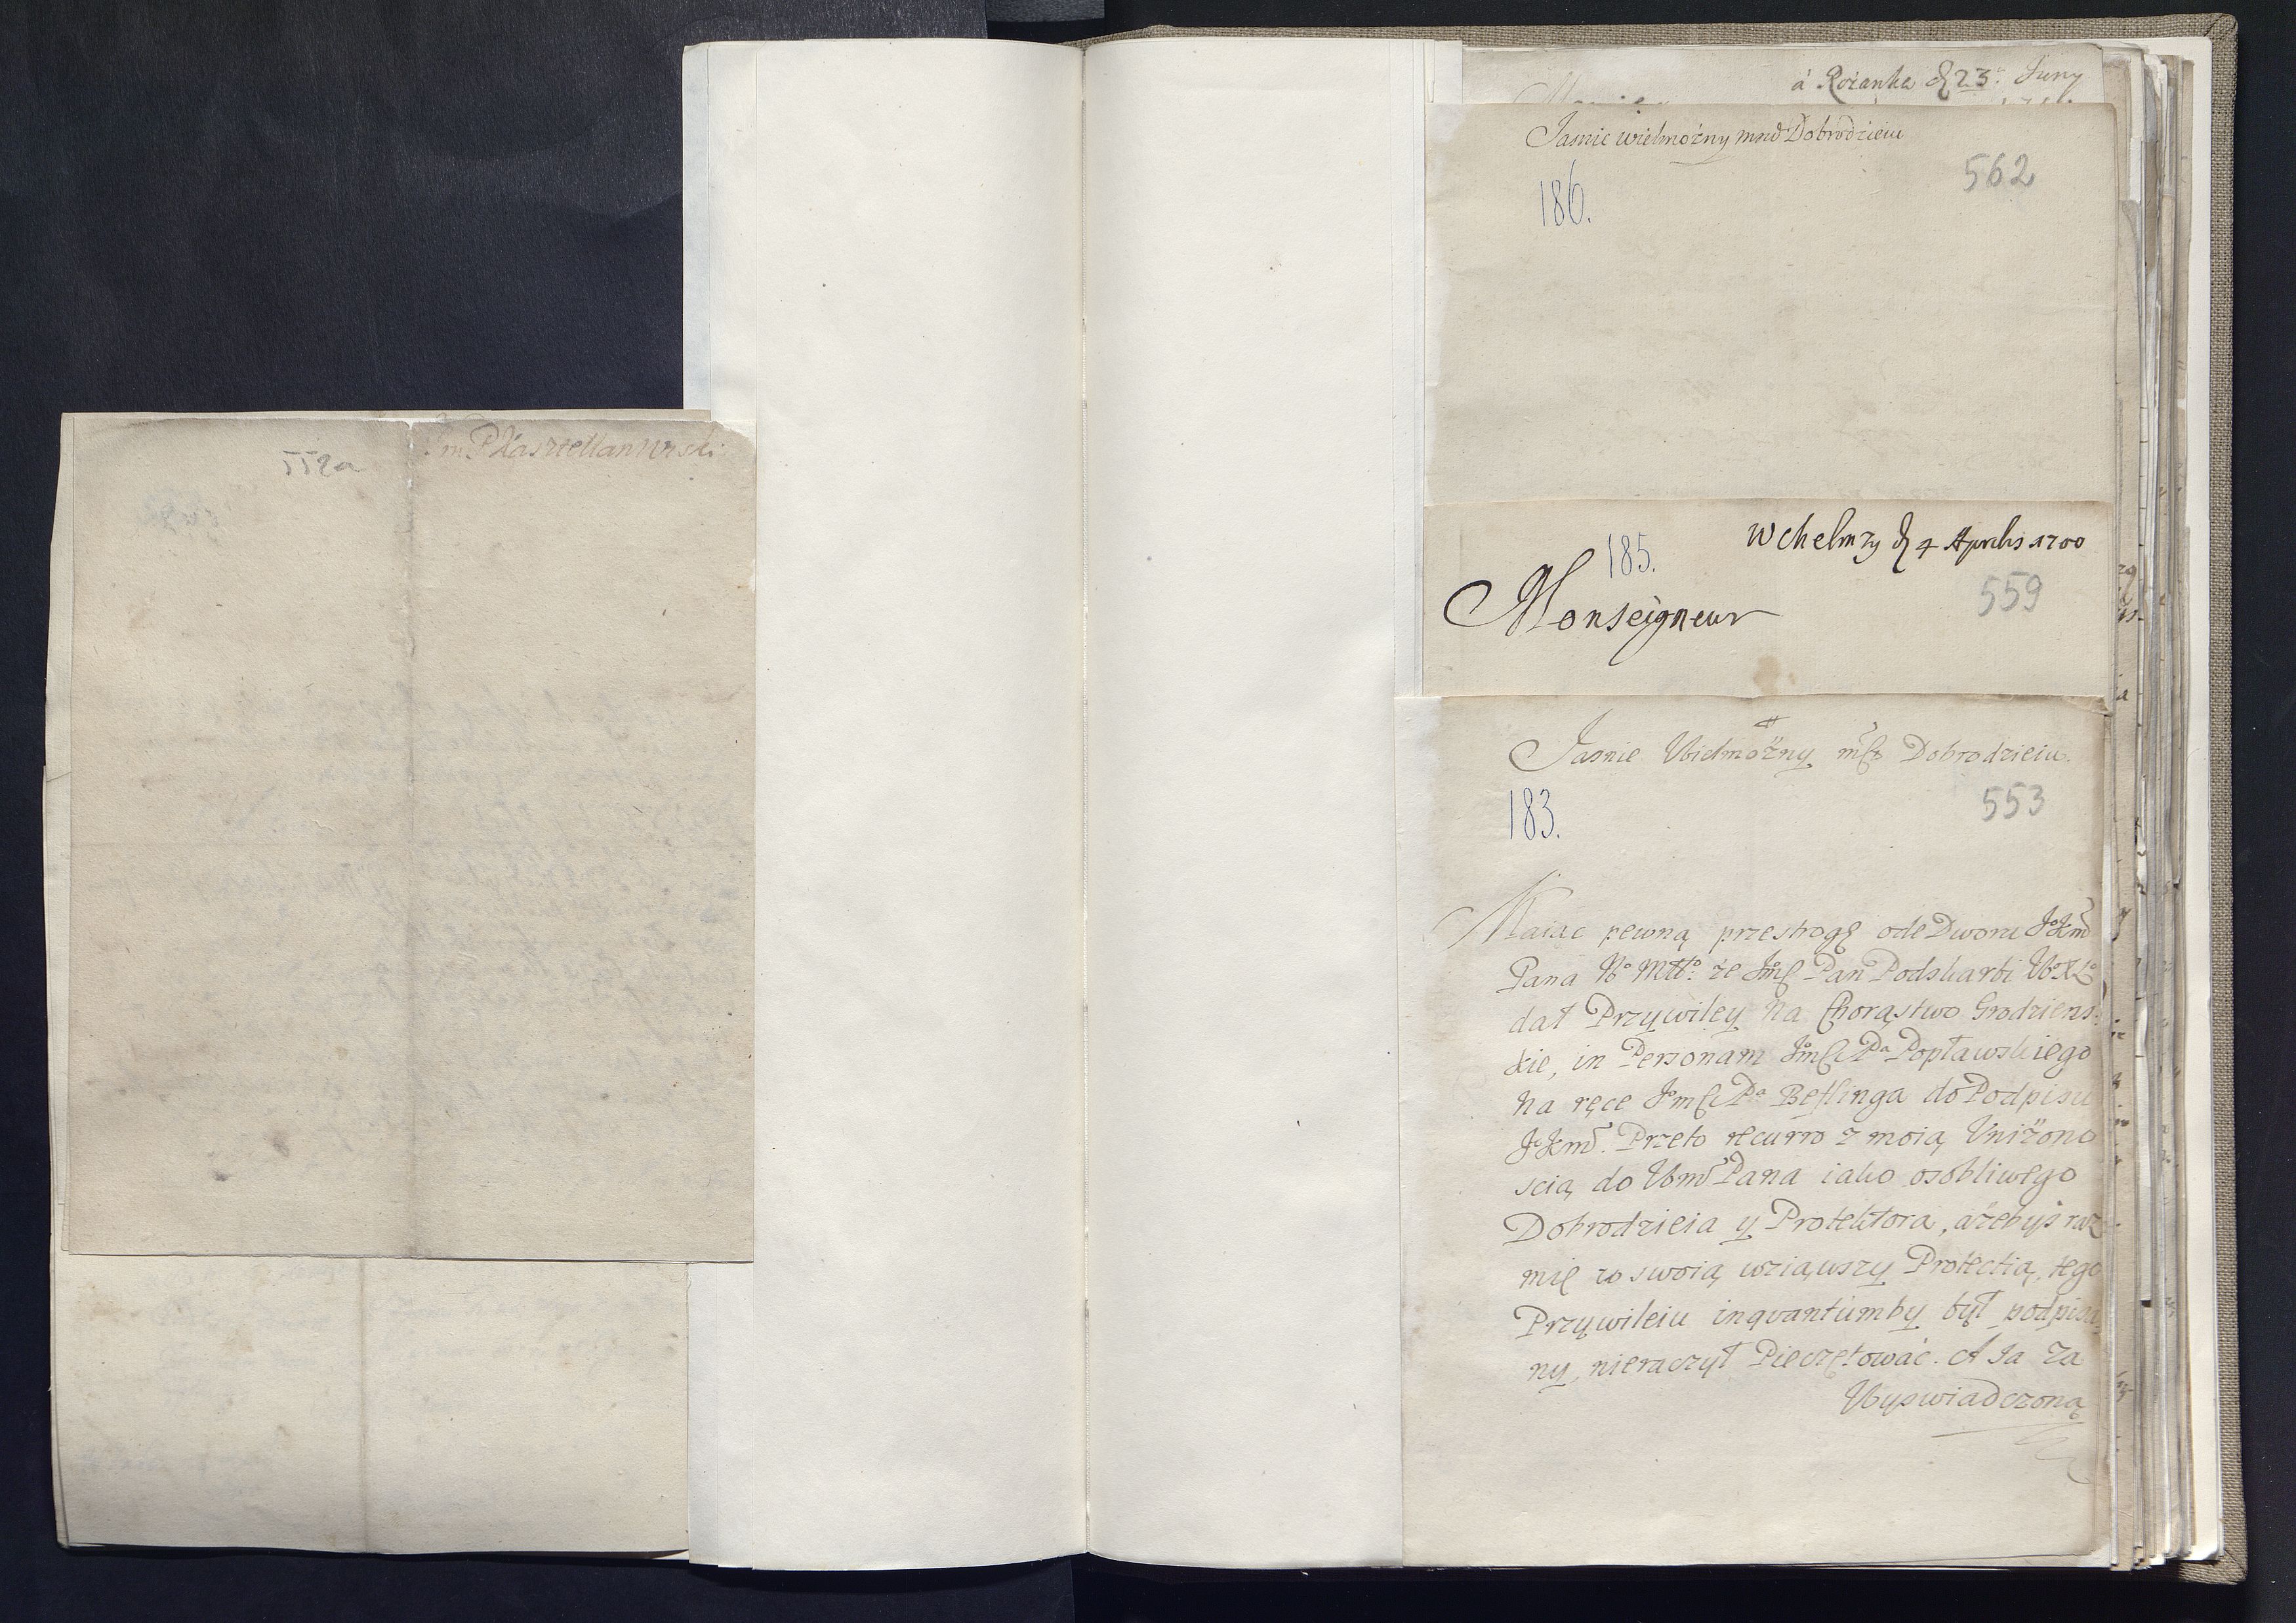 552a
Jm P Kasztellan Wski
à Rożanka d 23 Juny
Jasnie wielmożny mnd Dobrodzieiu
562
186.
W Chelmży d 4 Aprilis 1700
185.
559
Monseigneur
Jasnie Wielmożny mśż Dobrodzieiu.
183.
553
Maiąc pewną przestrogę ode Dworu JoKmć
Pana No Mttō: że Jmć Pan Podskarbi W.X.Lo
dał Przywiley na Chorąstwo Grodzieńs
kie, in Personam Jmść Pa Popławskiego
na ręce Jmść Pa Besslinga do Podpisu
JoKmć. Przeto recurro z moią Vniżono
scią do Wmć Pana iako osobliwego
Dobrodzieia y Protektora, ażebyś raz
mię w swoią wziąwszy Protectią, tego
Przywileiu inqvantumby był podpisa
ny, nieraczył Pieczętować. A Ja za
Wyświadczoną